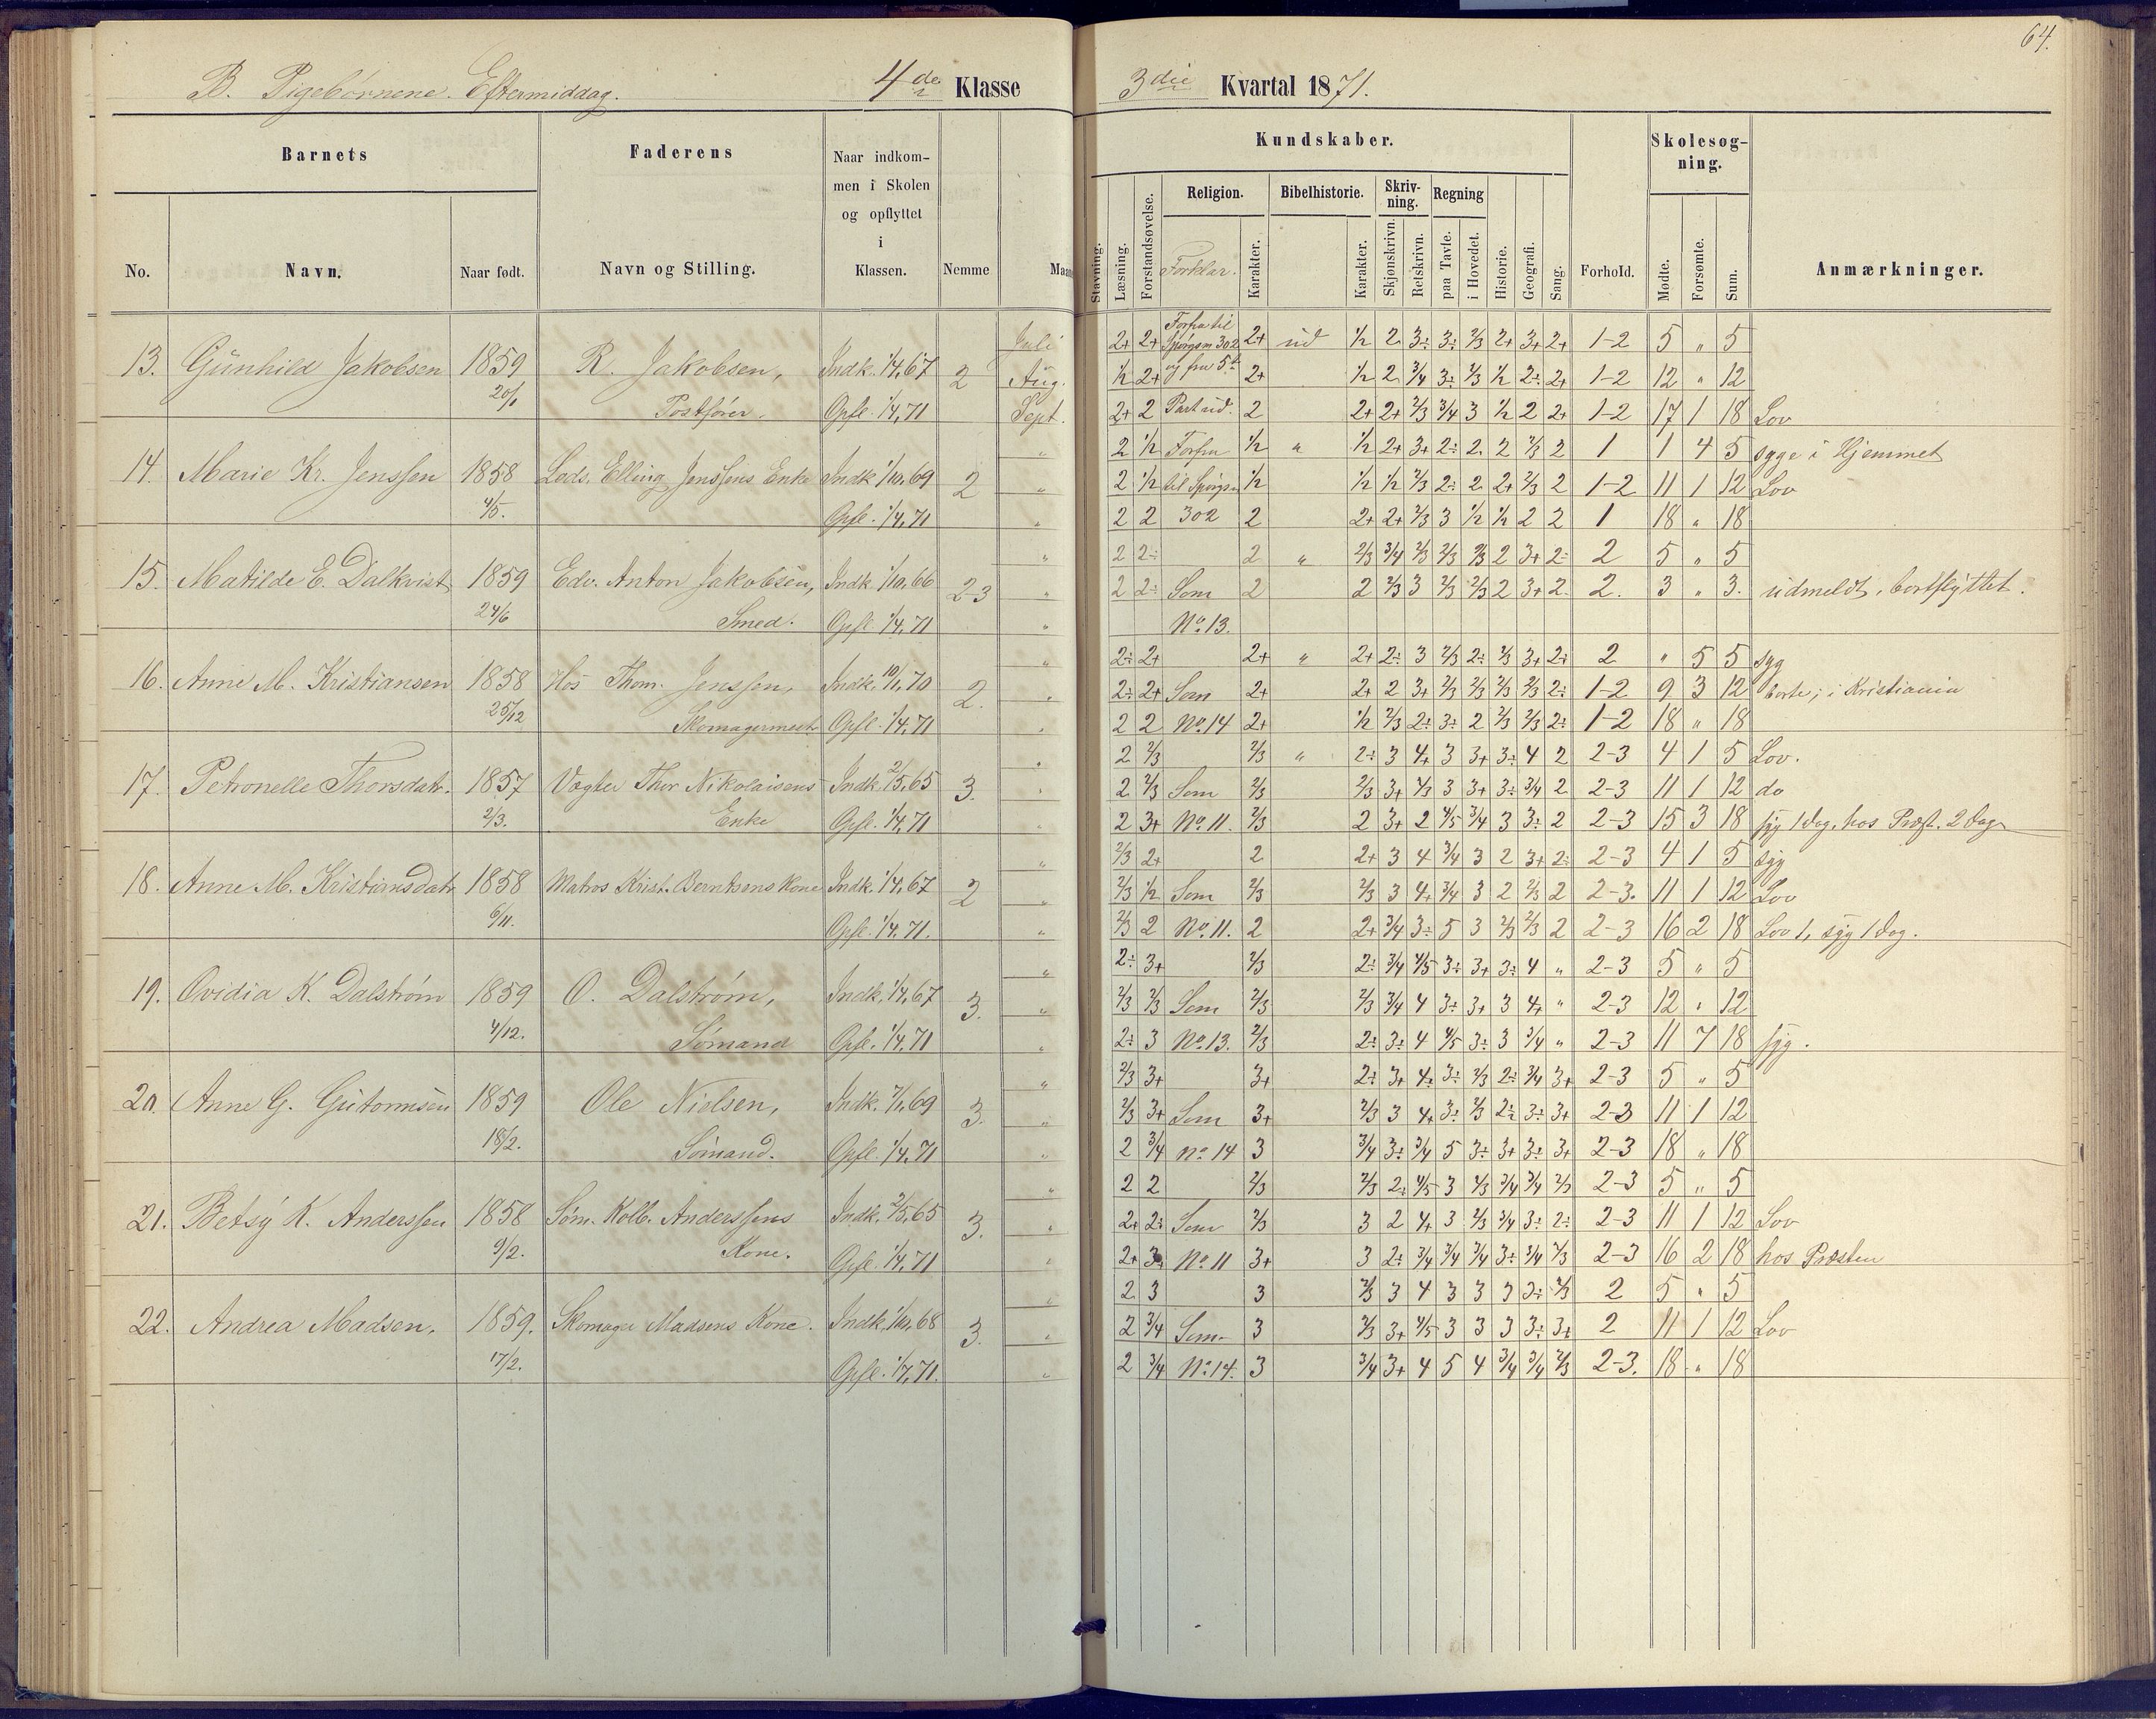 64.
B. Pigebørnene. Eftermiddag. 4de Klasse 3die Kvartal 1871.
Barnets
Faderens
Naar indkom-
men i Skolen
og opflyttet
i
Klassen.
No. Navn. Naar født. Navn og Stilling. Nemme
Kundskaber. Skolesøg-
ning.
Religion. Bibelhistorie. Skriv-
ning. Regning
Stavning. Læsning. Forstandsøvelse. Forklar. Karakter. Karakter. Skjønskrivn. Retskrivn. paa Tavle. i Hovedet. Historie. Geografi. Sang. Forhold. Mødte. Forsømte. Sum. Anmærkninger.
13. Günhild Jakobsen 1859 20/1 R. Jakobsen, Postfører. Indk. 1/4,67 Opfl. 1/4,71 2
Juli 2+ 2+ Forfra til Spörgsm 302 2+ ud 1/2 2 3÷ 3÷ 2/3 2+ 3+ 2+ 1-2 5 " 5
Aug. 1/2 2+ og fra 5te 2+ 1/2 2 3/4 3÷ 2/3 1/2 2÷ 2+ 1-2 12 " 12
Sept. 2+ 2 Part ud. 2 2+ 2+ 2/3 3/4 3 1/2 2 2+ 1-2 17 1 18 Lov
14. Marie Kr. Jenssen 1858 4/5. Lods. Elling Jenssens Enke Indk 1/10,69 Opfl. 1/4,71 2
" 2 1/2 Forfra 1/2 " 1/2 2+ 3+ 2÷ 2 2 2/3 2 1 1 4 5 syge i Hjemmet
" 2 1/2 til Spörgsm 1/2 1/2 1/2 2/3 2÷ 2 2+ 2/3 2 1-2 11 1 12 Lov
" 2 2 302 2 2+ 2+ 2/3 3 1/2 1/2 2 2 1 18 " 18
15. Matilde E. Dalkvist 1859 24/6 Edv. Anton Jakobsen, Smed. Indk 1/10,66 Opfl. 1/4,71 2-3
" 2 2÷ 2 " 2/3 3/4 2/3 2/3 2/3 2 3+ 2÷ 2 5 " 5
" 2 2÷ Som 2 2 2/3 3 2/3 2/3 2 3+ 2. 2. 3 " 3. udmeldt, bortflyttet.
" No 13.
16. Anne M. Kristiansen 1858 25/12 Hos Thom. Jenssen, Skomagermest Indk. 10/1,70 Opfl. 1/4,71 2.
" 2÷ 2+ 2+ " 2+ 2÷ 3 2/3 2÷ 2/3 3+ 2÷ 2 " 5 5 syg
" 2÷ 2+ Som 2+ 2+ 2 3+ 2/3 2/3 2/3 2/3 2÷ 1-2 9 3 12 borte, i Kristiania
" 2 2 No 14 2+ 1/2 2/3 2÷ 3÷ 2 2/3 2/3 2÷ 1-2 18 " 18
17. Petronelle Thorsdatr. 1857 2/3. Vogter Thor Nikolaisens Enke Indk. 2/5,65 Opfl. 1/4,71 3.
" 2 2/3 2/3 " 2÷ 3 4+ 3 3+ 3÷ 4 2 2-3 4 1 5 Lov.
" 2 2/3 Som 2/3 2/3 3+ 4/3 3 3+ 3÷ 3/4 2 2-3 11 1 12 do
" 2 3+ No 11. 2/3 2 3+ 2 4/5 3/4 3 3÷ 2 2-3 15 3 18 syg 1 dag, hos Præst. 2 dage
18. Anne M. Kristiansdatr 1858 6/11. Matros Krist. Berntsens Kone Indk. 1/4,67 Opfl. 1/4,71. 2
" 2/3 2+ 2 2+ 3 4 3/4 3 2 3+ 2÷ 2-3 4 1 5 syg
" 2/3 1/2 Som 2/3 2/3 3 4+ 3/4 3 2 2/3 2 2-3. 11 1 12 Lov
" 2/3 2 No 11. 2 2+ 3/4 3÷ 5 3 2/3 2/3 2 2-3 16 2 18 Lov 1, syg 1 dag.
19. Ovidia K. Dalstrøm 1859 4/12. O. Dalstrøm, Sømand Indk. 1/4,67 Opfl. 1/4,71 3.
" 2÷ 3+ 2/3 2÷ 3/4 4/5 3÷ 3+ 3÷ 4 " 2-3 5 " 5
" 2/3 2/3 Som 2/3 2/3 3/4 4 3÷ 3+ 3 4+ " 2-3 12 " 12
" 2÷ 3 No 13. 2/3 2÷ 3÷ 4 4/5 3÷ 3 3/4 " 2-3 11 7 18 syg.
20. Anne G. Gütormsen 1859 18/2. Ole Nielsen, Sømand. Indk. 7/1,69 Opfl. 1/4,71 3.
" 2/3 3+ 3+ 2÷ 3+ 4÷ 3÷ 2/3 2÷ 3/4 3+ 2-3 5 " 5
" 2/3 3+ Som 3+ 2/3 3 4+ 3÷ 2/3 2÷ 3÷ 3+ 2-3 11 1 12
" 2 3/4 No 14 3 3/4 3÷ 3/4 5 3÷ 3+ 3÷ 3+ 2-3 18 " 18
21. Betsy K. Anderssen 1858 9/2. Søm. Kolb. Anderssens Kone. Indk. 2/5,65 Opfl. 1/4,71 3.
" 2 2 2/3 2/3 2÷ 4/5 3 2/3 3/4 3/4 2/3 2-3 5 " 5
" 2+ 2÷ Som 2/3 3 2 4+ 3 2/3 3/4 3÷ 2÷ 2-3 11 1 12 Lov
" 2+ 3 No 11 3+ 3 2÷ 3/4 3/4 3/4 3÷ 3/4 2/3 2-3 16 2 18 hos Præsten
22. Andrea Madsen. 1859. 17/2. Skomager Madsens Kone. Indk. 1/10,68 Opfl. 1/7,71. 3.
" 2 3 3 2/3 3 4 3 3 3 3÷ 2/3 2 5 " 5
" 2 3/4 Som 3 2/3 3+ 4/5 3 3 3 3÷ 3+ 2 11 1 12 Lov
" 2 3/4 No 14. 3 3/4 3+ 4 5 4 3/4 3/4 2/3 2-3. 18 " 18